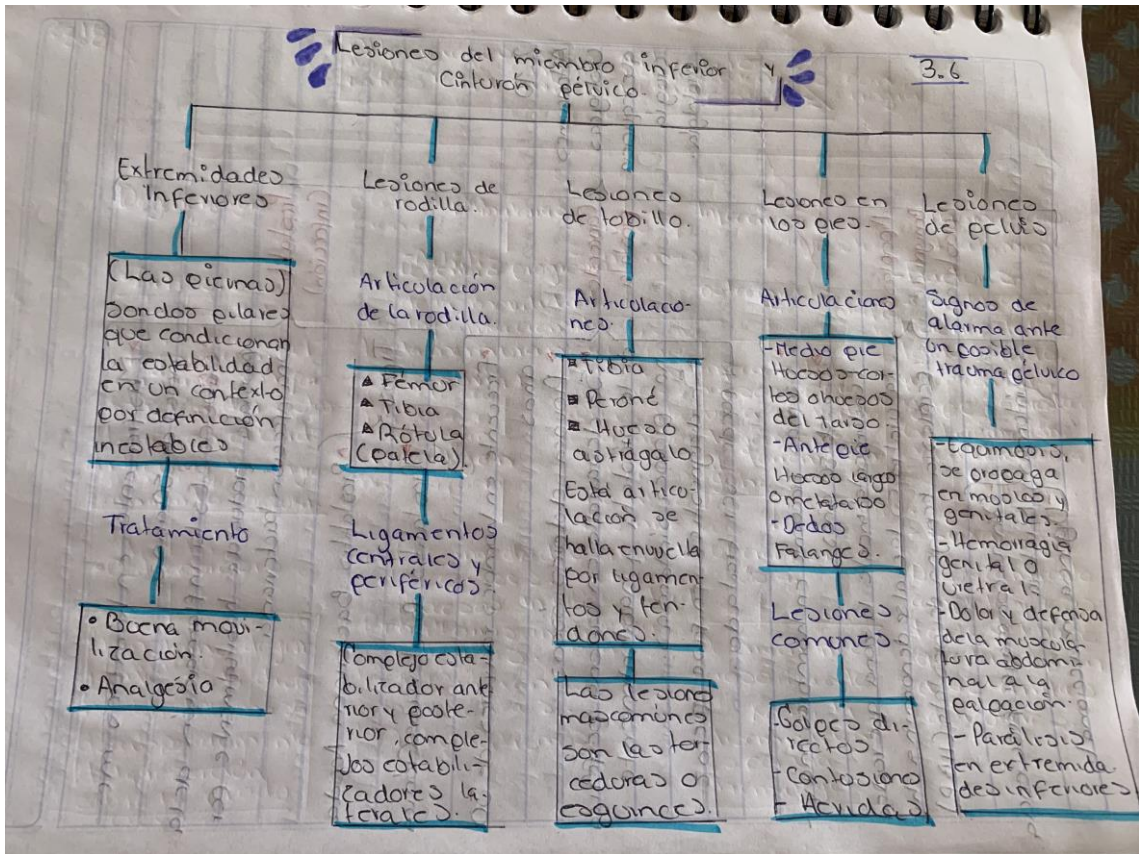 Lesiones del miembro inferior y
Cinturón pélvico.
3.6
Extremidades
Inferiores
(Las piernas)
son dos pilares
que condicionan
la estabilidad
en un contexto
por definición
inestables
Tratamiento
• Buena movi-
lización.
• Analgesia
Lesiones de
rodilla.
Articulación
de la rodilla.
▲ Fémur
▲ Tibia
▲ Rótula
(patela).
Ligamentos
centrales y
periféricos
Complejo esta-
bilizador ante
rior y poste-
rior, comple-
jos estabili-
zadores la-
terales.
Lesiones
de tobillo.
Articulacio-
nes.
■ Tibia
■ Peroné
■ Hueso
astrágalo
Esta artico-
lación se
halla envuelta
por ligamen-
tos y ten-
dones.
Las lesiones
mas comúnes
son las tor-
ceduras o
esguinces.
Lesiones en
los pies.
Articulaciones
- Medio pie
Huesos cor-
tos o huesos
del tarso.
- Ante pie
Huesos largo
o metatarso
- Dedos
Falanges.
Lesiones
comunes
- Golpes di-
rectos
- Contusiones
- Heridas
Lesiones
de pelvis
Signos de
alarma ante
un posible
trauma pélvico
- Equimosis,
se propaga
en muslos y
genitales.
- Hemorragia
genital o
uretral.
- Dolor y defensa
de la muscula
tura abdomi
nal a la
palpación.
- Parálisis
en extremida
des inferiores